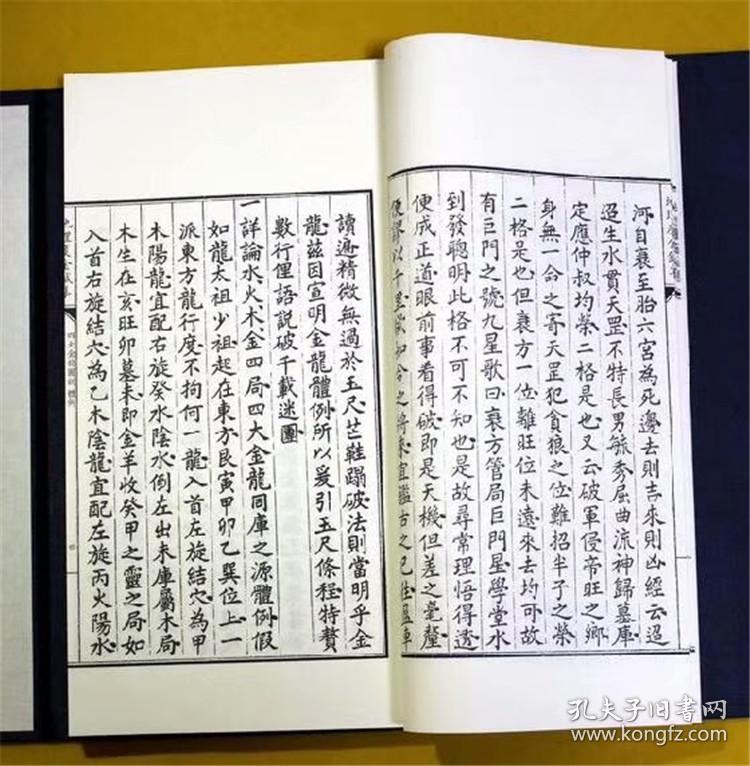 河自衰至胎六宮為死邊去則吉來則凶經云迢
迢生水貫天罡不特長男毓秀屈曲流神歸墓庫
定應仲叔均榮二格是也又云破軍侵帝旺之鄉
身無一命之寄天罡犯貪狼之位難招半子之榮
二格是也但衰方一位離旺位未遠來去均可故
有巨門之號九星歌曰衰方管局巨門星學堂水
到發聰明此格不可不知也是故尋常理悟得透
便成正道眼前事看得破即是天機但差之毫釐
便謬以千里欲知今之將來宜鑑古之已往
讀遍精微無過於玉尺芒鞋蹋破法則當明乎金
龍茲因宣明金龍體例所以爰引玉尺條程特贅
數行俚語説破千載迷團
一詳論水火木金四局四大金龍同庫之源體例假
如龍太祖少祖起在東方艮寅甲卯乙巽位上一
派東方龍行度不拘何一龍入首左旋結穴為甲
木陽龍宜配右旋癸水陰水例左出未庫屬木局
木生在亥旺卯墓未即金羊收癸甲之靈之局如
入首右旋結穴為乙木陰龍宜配左旋丙火陽水
孔夫子旧书网
www.kongfz.com